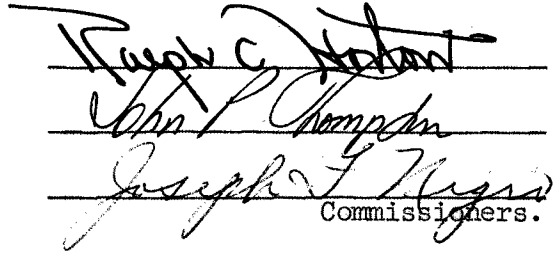 Ralph C. Horton
John P Thompson
Joseph F Nigro
Commissioners.